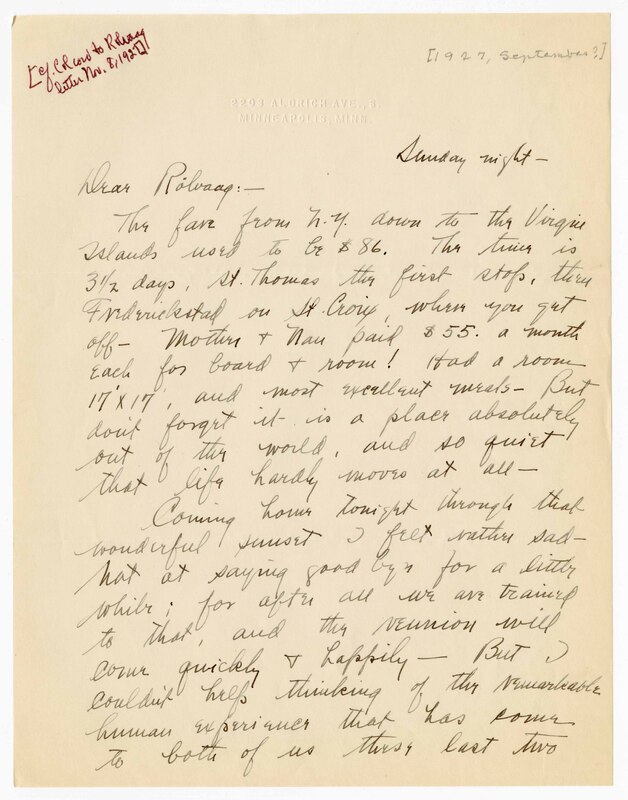 [cf. Colcord to Rolvaag
letter Nov. 8, 1927]
[1927, September?]
2203 ALDRICH AVE., S.
MINNEAPOLIS, MINN.
Sunday night —
Dear Rölvaag: —
The fare from N.Y. down to the Virgin
Islands used to be $86. The time is
3½ days, St. Thomas the first stop, then
Frederickstad on St. Croix, where you get
off — Mother & Nan paid $55. a month
each for board & room! Had a room
17'x17', and most excellent meals — But
don't forget it is a place absolutely
out of the world, and so quiet
that life hardly moves at all —
Coming home tonight through that
wonderful sunset I felt rather sad —
not at saying good bye for a little
while; for after all we are trained
to that, and the reunion will
come quickly & happily — But I
couldn't help thinking of the remarkable
human experience that has come
to both of us these last two